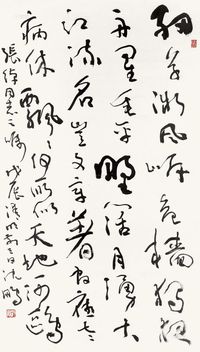 細草微風岸危檣獨夜
舟星垂平野闊月湧大
江流名豈文章著官應老
病休飄飄何所似天地一沙鷗
同志之囑 戊辰清明前 日沈鵬